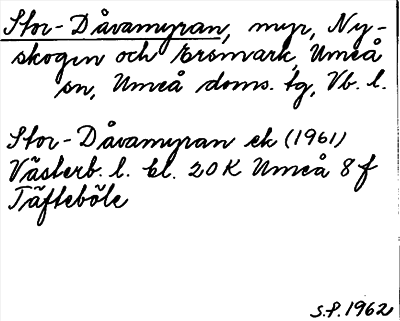 Stor-Dåvamyran, myr, Ny-
skogen och Ersmark, Umeå
sn, Umeå doms. tg, Vb. l.
Stor-Dåvamyran ek (1961)
Västerb. l. bl. 20K Umeå 8f
Täfteböle
S.P. 1962